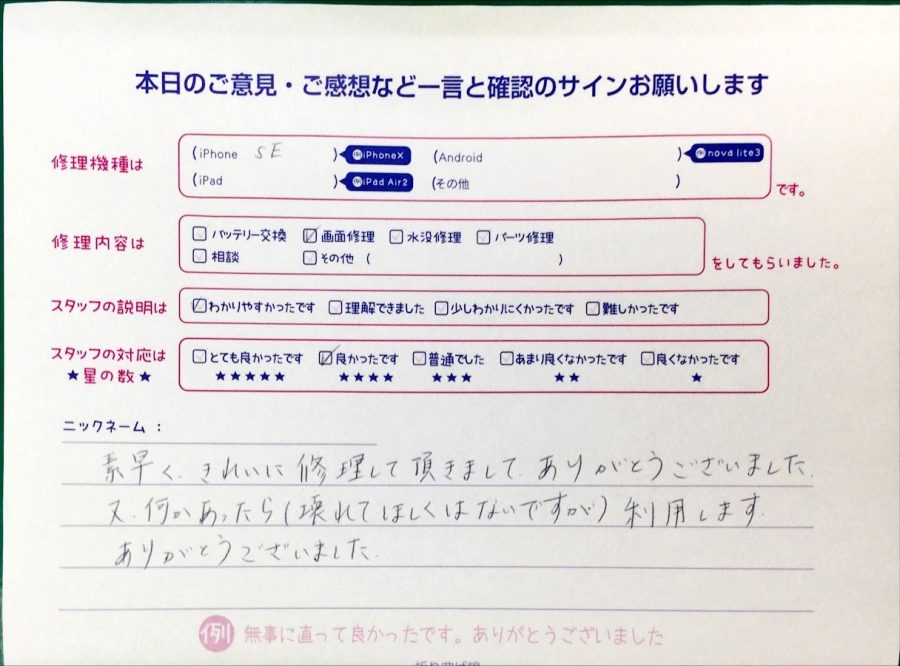 本日のご意見・ご感想など一言と確認のサインお願いします
修理機種は
(iPhone SE ) 例iPhoneX (Android ) 例nova lite3
(iPad ) 例iPad Air2 (その他 ) です。
修理内容は
バッテリー交換 画面修理 水没修理 パーツ修理
相談 その他 ( ) をしてもらいました。
スタッフの説明は わかりやすかったです 理解できました 少しわかりにくかったです 難しかったです
スタッフの対応は とても良かったです 良かったです 普通でした あまり良くなかったです 良くなかったです
★星の数★ ★★★★★ ★★★★ ★★★ ★★ ★
ニックネーム：
素早く、きれいに修理して頂きまして、ありがとうございました。
又、何かあったら(壊れてほしくはないですが)利用します。
ありがとうございました。
例 無事に直って良かったです。ありがとうございました